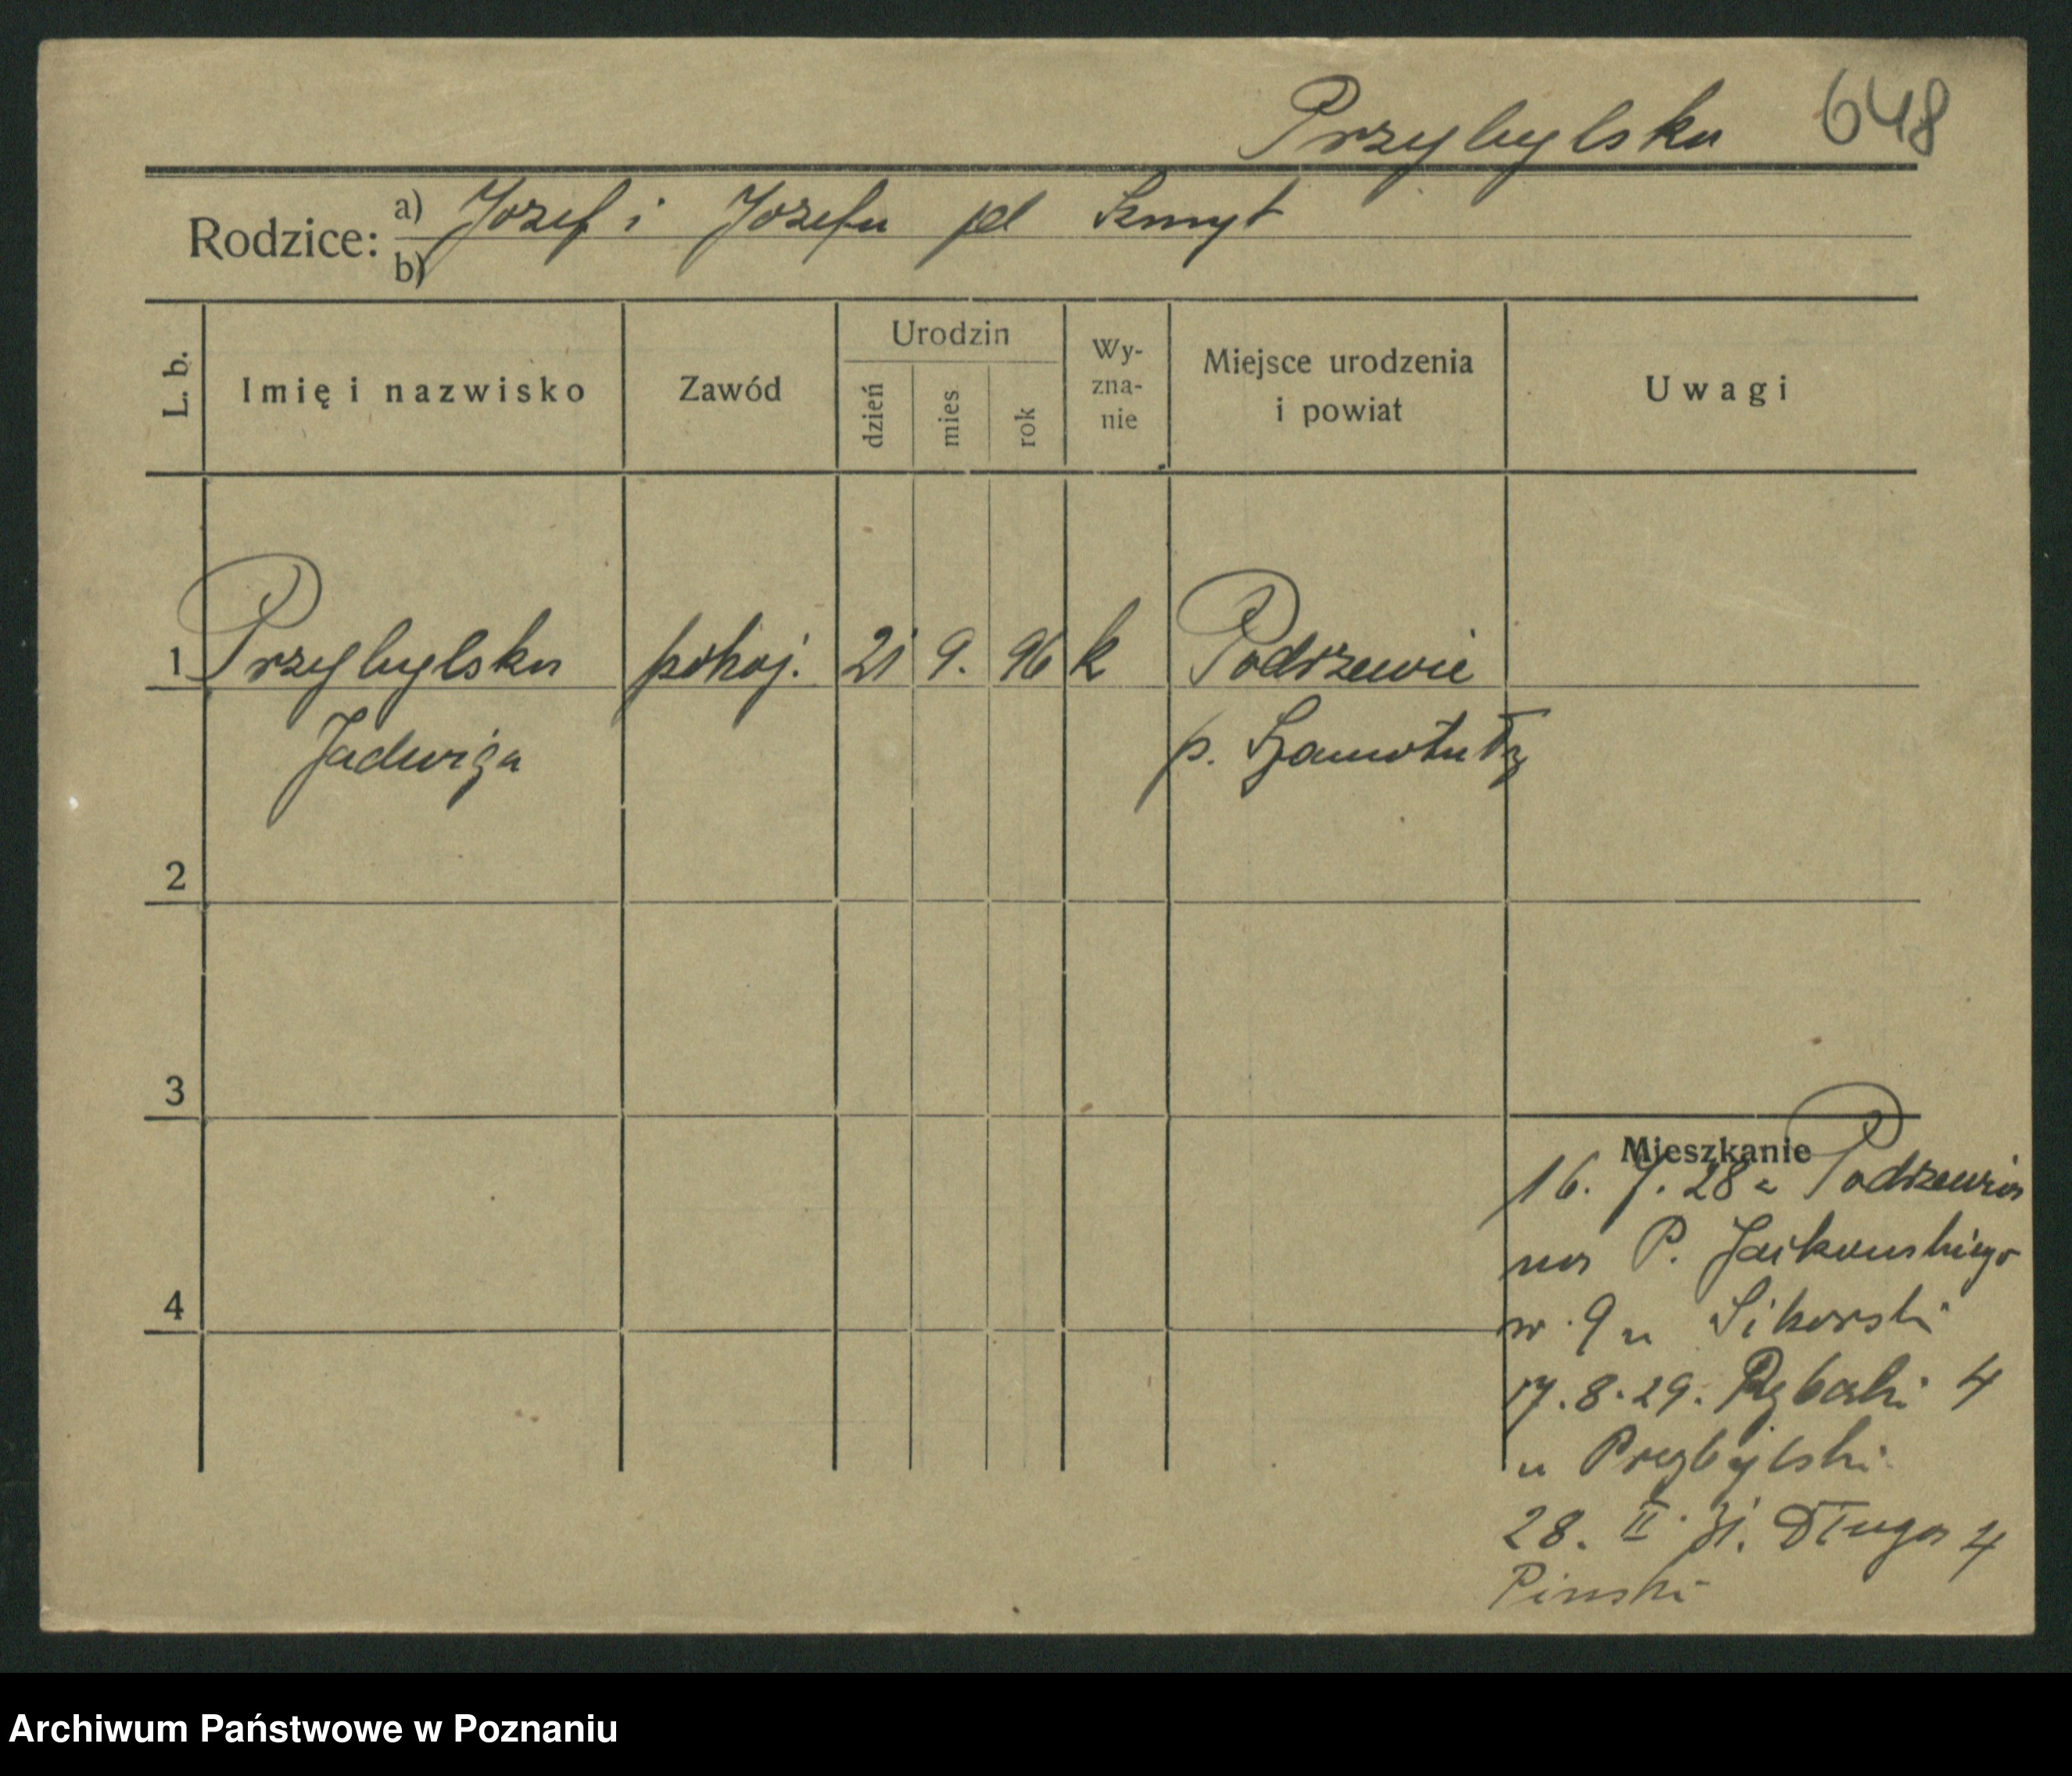 Przybylska 648
Rodzice: a) Jozef i Jozefa
b)
L. b.
Imię i nazwisko
Zawód
Urodzin
dzień
mies
rok
Wy-
zna-
nie
Miejsce urodzenia
i powiat
Uwagi
1 Przybylska pokoj. 21 9. 96 k Podrzewie
Jadwiga p. Szamotuły
2
3
4
Mieszkanie
16. 7. 28 z Podrzewia
na P. Jackowskiego
nr 9 u Sikorski
17.8.29. Rybaki 4
u Przybylski
28. II. 31. Długa 4
Pinski
Archiwum Państwowe w Poznaniu